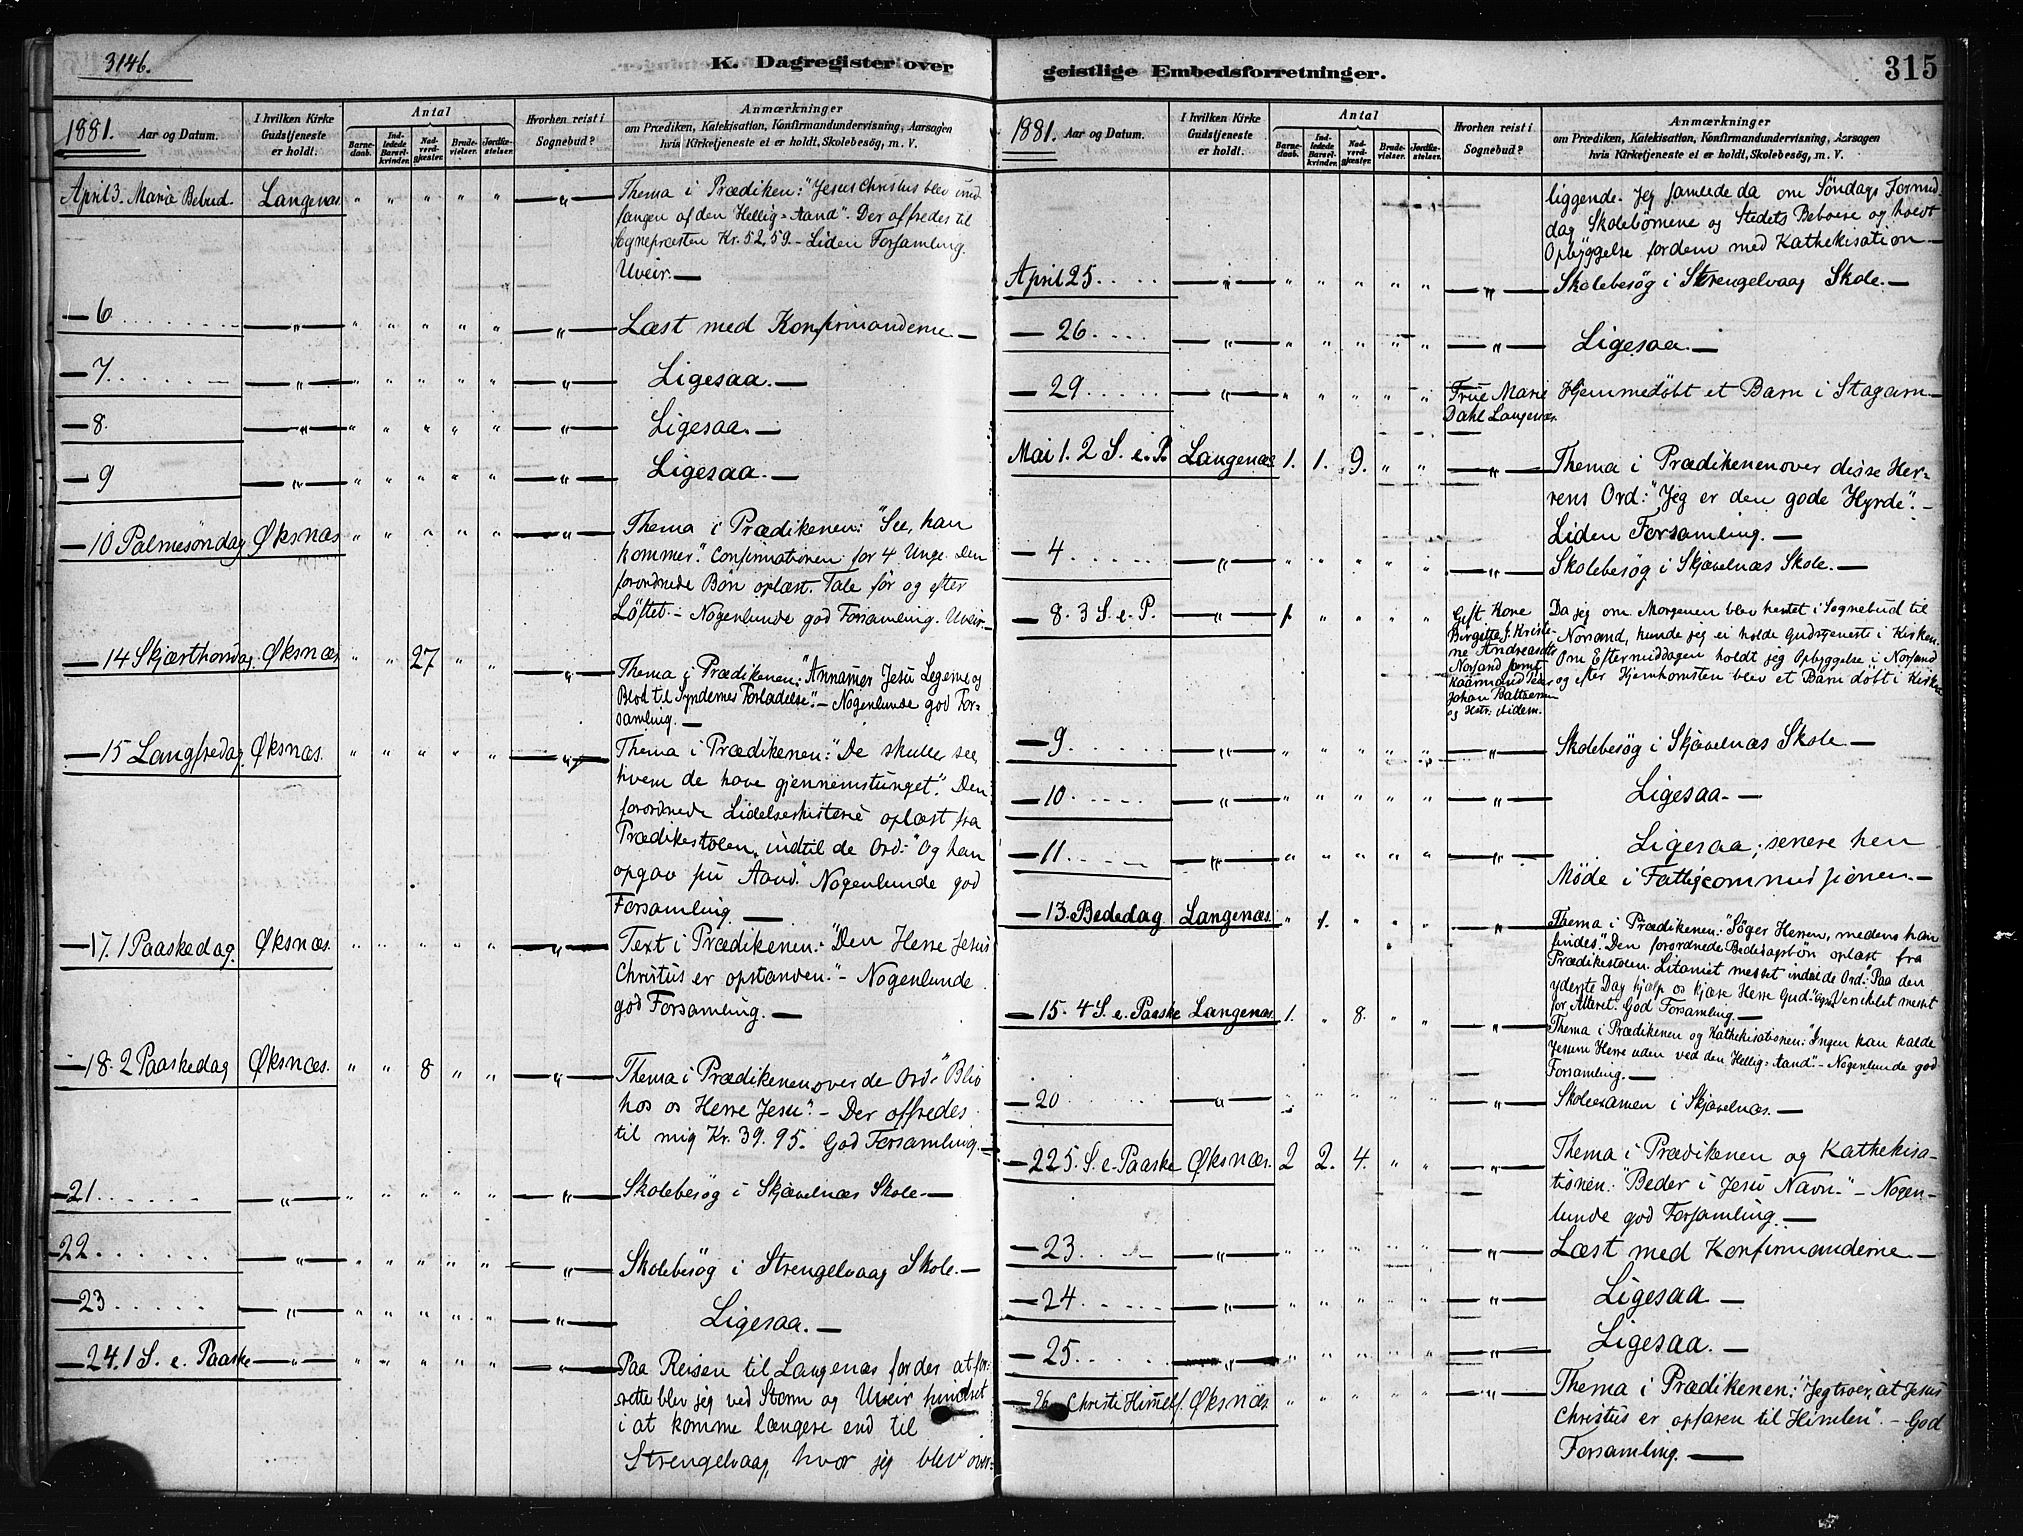 3146.
K. Dagregister over
1881. Aar og Datum.
I hvilken Kirke Gudstjeneste er holdt.
Antal
Barnedaab.
Indledede Barselkvinder.
Nadverdgjæster.
Brudevielser.
Jordfæstelser.
Hvorhen reist i Sognebud?
Anmærkninger
om Prædiken, Katekisation, Konfirmandundervisning, Aarsagen
hvis Kirketjeneste ei er holdt, Skolebesøg, m. V.
April 3. Mariæ Bebud. Langenæs " " " " " — " —
Thema i Prædiken: "Jesus Christus blev und
fangen af den Hellig-Aand". Der offredes til
Sognepræsten Kr. 52,59. – Liden Forsamling.
Uveir. —
— 6 . . . . . — " — " " " " " — " — Læst med Konfirmanderne —
— 7 . . . . . — " — " " " " " — " — Ligesaa. —
— 8. — " — " " " " " — " — Ligesaa. —
— 9 — " — " " " " " — " — Ligesaa. —
— 10 Palmesøndag Øksnæs " " " " " — " —
Thema i Prædikenen: "See, han
kommer". Confirmationen for 4 Unge. Den
forordnede Bøn oplæst. Tale før og efter
Løftet – Nogenlunde god Forsamling. Uveir. —
— 14 Skjærthorsdag. Øksnæs " " 27 " " — " —
Thema i Prædikenen: "Annamer Jesu Legeme og
Blod til Syndernes Forladelse". – Nogenlunde god For-
samling. —
— 15 Langfredag Øksnæs. " " " " " — " —
Thema i Prædikenen: "De skulle see,
hvem de have gjennemstunget". Den
forordnede Lidelseshistorie oplæst fra
Prædikestolen, indtil de Ord: "Og han
opgav sin Aand." Nogenlunde god
Forsamling —
— 17. 1 Paaskedag. Øksnæs. " " " " " — " —
Text i Prædikenen: "Den Herre Jesus
Christus er opstanden." – Nogenlunde
god Forsamling. —
— 18. 2 Paaskedag Øksnæs. " " 8 " " — " —
Thema i Prædikenen over de Ord: "Bliv
hos os Herre Jesu". – Der offredes
til mig Kr. 39.95. God Forsamling. —
— 21 . . . . . — " — " " " " " — " — Skolebesøg i Skjævelnæs Skole —
— 22 . . . . . — " — " " " " " — " — Skolebesøg i Strengelvaag Skole. —
— 23 . . . . . — " — " " " " " — " — Ligesaa. —
— 24. 1 S. e. Paaske — " — " " " " " — " —
Paa Reisen til Langenæs for der at for-
rette blev jeg ved Storm og Uveir hindret
i at komme længere end til
Strengelvaag, hvor jeg blev over-
geistlige Embedsforretninger.
315
1881. Aar og Datum.
I hvilken Kirke Gudstjeneste er holdt.
Antal
Barnedaab.
Indledede Barselkvinder.
Nadverdgjæster.
Brudevielser.
Jordfæstelser.
Hvorhen reist i Sognebud?
Anmærkninger
om Prædiken, Katekisation, Konfirmandundervisning, Aarsagen
hvis Kirketjeneste ei er holdt, Skolebesøg, m. V.
liggende. Jeg samlede da om Søndags Formid-
dag Skolebørnene og Stedets Beboere og holdt
Opbyggelse for dem med Kathekisation —
April 25. . . . . — " — " " " " " — " — Skolebesøg i Strengelvaag Skole. —
— 26. . . . — " — " " " " " — " — Ligesaa. —
— 29. . . . . — " — " " " " "
Frue Marie
Dahl Langenæs.
Hjemmedøbt et Barn i Stagarn —
Mai 1. 2 S. e. P. Langenæs 1. 1. 9. " " — " —
Thema i Prædikenen over disse Her-
rens Ord: "Jeg er den gode Hyrde". –
Liden Forsamling. —
— 4 . . . . . — " — " " " " " — " — Skolebesøg i Skjævelnæs Skole. —
— 8. 3 S. e. P. — " — 1 " " " "
Gift Kone
Birgitte f. Kristi-
ne Andreasdtr
Norsand samt
Kaarmand Peder
Johan Baltzersen
og Hstr. ibidem.
Da jeg om Morgenen blev hentet i Sognebud til
Norsand, kunde jeg ei holde Gudstjeneste i Kirken.
Om Eftermiddagen holdt jeg Opbyggelse i Norsand
og efter Hjemkomsten blev et Barn døbt i Kirken
— 9. . . . . — " — " " " " " — " — Skolebesøg i Skjævelnæs Skole —
— 10. . . . . — " — " " " " " — " — Ligesaa. —
— 11. . . . . — " — " " " " " — " —
Ligesaa; senere hen
Møde i Fattigcommissionen. —
— 13. Bededag Langenæs. " 1. " " " — " —
Thema i Prædikenen: "Søger Herren, medens han
findes". Den forordnede Bededagsbøn oplæst fra
Prædikestolen. Litaniet messet indtil de Ord: "Paa den
yderste Dag hjælp os kjære Herre Gud." Versiklet messet
for Alteret. God Forsamling. —
— 15. 4 S. e. Paaske Langenæs. 1. " 8. " " — " —
Thema i Prædikenen og Kathekisationen: "Ingen kan kalde
Jesum Herre uden ved den Hellig-Aand". – Nogenlunde god
Forsamling. —
— 20 . . . . . — " — " " " " " — " — Skoleexamen i Skjævelnæs. —
— 22 5. S. e. Paaske Øksnæs. 2 2. 4. " " — " —
Thema i Prædikenen og Kathekisa-
tionen: "Beder i Jesu Navn." – Nogen-
lunde god Forsamling. —
— 23 . . . . — " — " " " " " — " — Læst med Konfirmanderne —
— 24 . . . . . — " — " " " " " — " — Ligesaa —
— 25. . . . . — " — " " " " " — " — Ligesaa. —
— 26. Christi Himelf. Øksnæs. " " " " " — " —
Thema i Prædikenen: "Jeg troer, at Jesus
Christus er opfaren til Himlen". – God
Forsamling. —